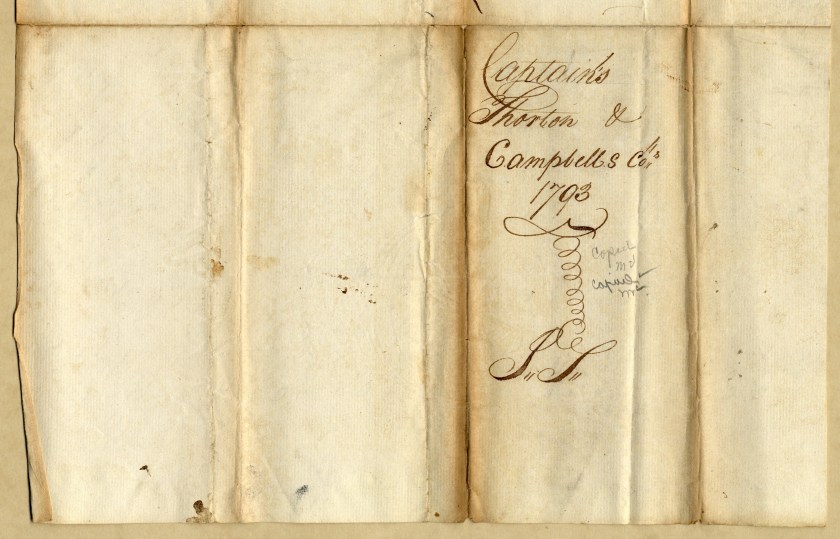 Captain's
Thorton &
Campbells Co"s
1793
Copied
copied
S,, S,,